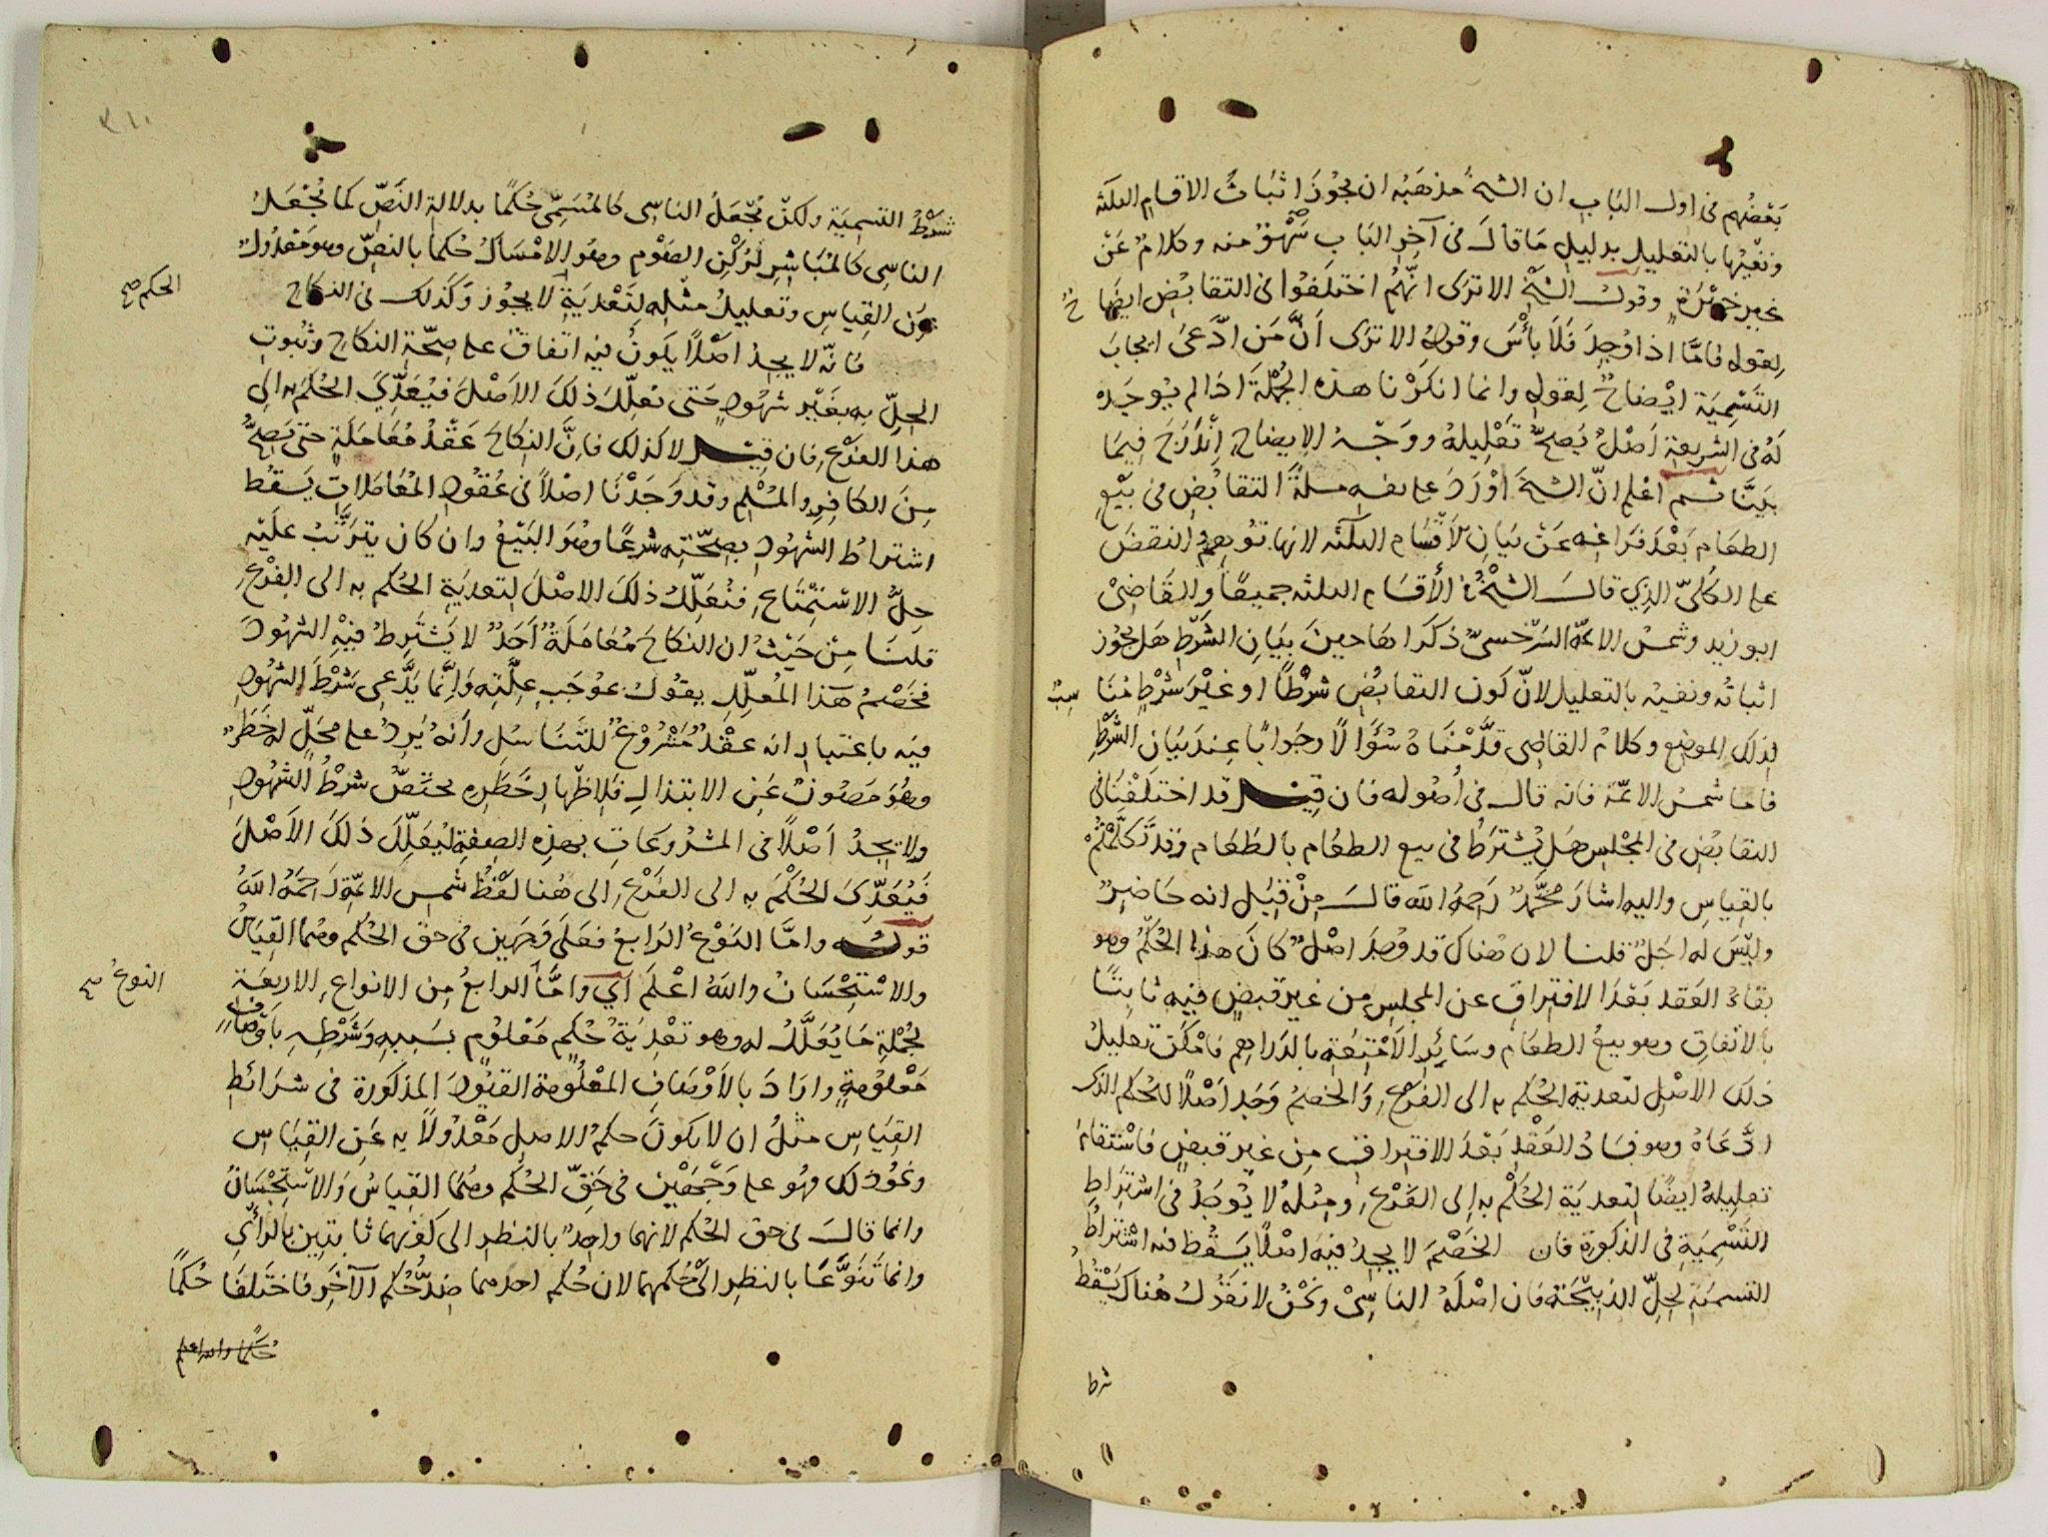 بَعْضُهم فى اول البَابِ ان الشيخ مذهَبُه ان يجُوزَ اثبَاتُ الاقسامِ الثلثة
ونفيُها بالتعليلِ بدليلِ مَا قالَ فى آخرِ البَابِ سَهْوٌ منه وكلامٌ عَنْ
غيرِ خِبْرَةٍ وقولُ الشَّيْخِ الا ترَى انّهُم اختلَفُوا فى التقابُضِ ايضًا
لِقوله فامّا اذا وُجِدَ فَلَا بأْسَ وقولُهُ الا ترَى اَنَّ مَن ادَّعَى ايجابَ
التَسْمِيَة ايْضاحٌ لِقولِهِ وانما انكَرْنا هذه الجُمْلَةَ اذا لم يُوجَد
لَهُ فى الشريعةِ اَصْلٌ يَصِحُّ تَعْلِيلهُ ووَجْهُ الايضاحِ اِنْدَرَجَ فِيمَا
بيَنَّا ثم اعْلم انّ الشيخَ اوْرَدَ على نفسه مسئلةَ التقابُضِ فى بَيْعِ
الطعَام بَعْدَ فرَاغِه عَنْ بَيَانِ الاَقْسَام الثلثَه لانها تُوهِمُ النقضَ
على الكُلىِّ الذِي قالَ الشيْخُ فى الأقسَام الثلثه جميعًا والقَاضِىْ
ابو زيد وشمسُ الائمّة السَرَخسىّ ذكَرَاهَا حِينَ بيَانِ الشَرْطِ هَل يجُوز
اثباتُه ونفيُه بالتعليل لانّ كون التقابُضِ شَرْطًا او غيْرَ شَرْطٍ مُنَا
سِبٌ
لِذلك الموضعِ وكلامُ القاضِى قدَّمْنَاهُ سُؤَالًا وجوابًا عِندَ بيَانِ الشَّرْطِ
فاما شمسُ الائمّة فانه قال فى اُصُوله فان قِيلَ قد اختلَفْنَا فى
التقابُضِ فى المَجْلِسِ هَل يُشترَطُ فى بيع الطعَام بالطَعَام وقدْ تَكلَّمْتُمْ
بالقِياسِ واليه اشارَ مُحَمَّدٌ رَحِمَهُ الله قالَ مِنْ قِبَلِ انه حَاضِرٌ
وليْسَ له اجَلٌ قلنا لان هُناك قد وُجِدَ اصْلٌ كانَ هذا الحُكْمُ وهو
بقاءُ العَقد بَعْدَ الافتِراقِ عن المجلسِ مِن غيرِ قبضٍ فيه ثابتًا
بالاتّفاقِ وهو بيعُ الطعَامِ وسَائِرِ الاَمْتِعَةِ بالدَرَاهِم فامْكَنَ تعليلُ
ذلك الاصْلِ لتعديةِ الحُكم به الى الفرْعِ وَالخصْمُ وَجَد اَصْلًا للحُكم الذى
ادَّعَاهُ وهو فسَادُ العَقْدِ بَعْدَ الافتِراقِ مِن غيرِ قبضٍ فاسْتقامَ
تعليلهُ ايضًا لِتعديَة الحُكْمِ به الى الفَرْعِ ومِثلُهُ لا يُوجَدُ فى اشتِراطِ
التَسْمِيَةِ فى الذكوٰة فان الخَصْمَ لا يجدُ فيه اصْلًا يَسْقُط فيه اشْتراطُ
التسميَة لِحِلِّ الذبِيْحَة فان اصْلَهُ الناسِىْ ونَحْنُ لا نقُولُ هُناك يَسْقُطُ
شرط
٣١٠
شَرْطُ التسمِيَة ولكنّ نَجْعَلُ الناسِى كالمُسَمِّى حُكمًا بدلالةِ النَصِّ كما نُجْعَلُ
الناسِى كالمُبَاشِرِ لرُكْنِ الصَوْمِ وهُو الامْسَاكُ حُكمًا بالنصِّ وهو مَعْدُولٌ
عَن القِياسِ وتعليلُ مثلِه لتَعْدِيَةِ لا يجُوز وكَذلك فى النكاح
الحكم صح
فانّه لا يجِدُ اَصْلًا يكونُ فيه اتفاقٌ على صِحّةِ النكاحِ وثُبُوتِ
الحِلِّ به بغيْرِ شهُودٍ حَتى نعلِّلَ ذلكَ الاَصْلَ فيُعدِّىَ الحُكمَ به الى
هذا الفرْعِ فان قِيلَ لا كذلك فاِنَّ النِكاحَ عَقْدُ مُعَامَلَةٍ حتى يَصِحُّ
مِنَ الكافِرِ والمُسْلِم وقد وَجَدْنَا اصْلًا فى عُقُودِ المُعَامَلاتِ يَسقُط
اشترَاطُ الشهُودِ بصِحّتِه شرعًا وهُوَ البَيْعُ وان كان يتَرَتَّبُ علَيْه
حِلُّ الاسْتِمْتَاعِ فنُعَلِّلُ ذلكَ الاصْلَ لِتعديَةِ الحُكم به الى الفرْعِ
قلنَا مِنْ حَيْثُ ان النكاحَ مُعَامَلَةٌ اَحَدٌ لا يَشْتَرِطُ فيْهِ الشهُودَ
فخَصْمُ هَذا المُعلِّلِ يقُولُ بمُوجَبِ عِلَّتِه وَاِنَّما يَدَّعِى شَرْطَ الشهُودِ
فيه باعتبارِ انه عقْدٌ مَشْرُوْعٌ للتَنَاسُلِ وأنه يَرِدُ على محَلٍّ له خَطَرٌ
وهُوَ مَصُونٌ عَنِ الابتذالِ فلِاظهارِ خَطَرِه يختَصُّ شرْطُ الشهُودِ
ولا يَجِدُ اَصْلًا فى المشرُوعَاتِ بهذِه الصِفَةِ لِيُعَلِّلَ ذلكَ الاَصْلَ
فَيُعَدِّىَ الحُكْمَ به الى الفَرْعِ الى هُنا لفظُ شمسِ الائمّة رَحمَهُ اللهُ
قوله وامّا النَوْعُ الرَابعُ فعَلَى وَجهَين فى حقّ الحُكم وهُمَا القِيَاسُ
والاسْتِحْسَانُ واللهُ اعْلَم اَي وامَّا الرابعُ مِن الانواعِ الاربعَة
النوعُ صح
لِجُمْلةِ مَا يُعَلَّلُ له وهو تعْدِيَةُ حُكمٍ مَعْلومٍ بسَبَبِهِ وَشَرْطِهِ بَاَوْصَافٍ
مَعْلوُمَةٍ وارَادَ بالاَوْصَافِ المَعْلُومة القيُودَ المذكورة فى شرَائطِ
القِيَاسِ مثلُ ان لا يكونَ حكمُ الاصلِ مَعْدُولًا به عَن القِيَاسِ
ونحْو ذلك فهُو على وَجْهَيْنِ فى حَقّ الحُكْم وهُمَا القِياسُ وَالاسْتِحْسَانُ
وانما قالَ فى حق الحُكم لانهما واحِدٌ بالنظرِ الى كَونهما ثابتَينِ بالرَأْيِ
وانما تَنَوَّعَا بالنظرِ الى حُكمِهِمَا لان حُكم احدهما ضِدُّ حُكم الآخَرِ فاختَلَفَا حُكمًا
حُكمًا والله اعلم